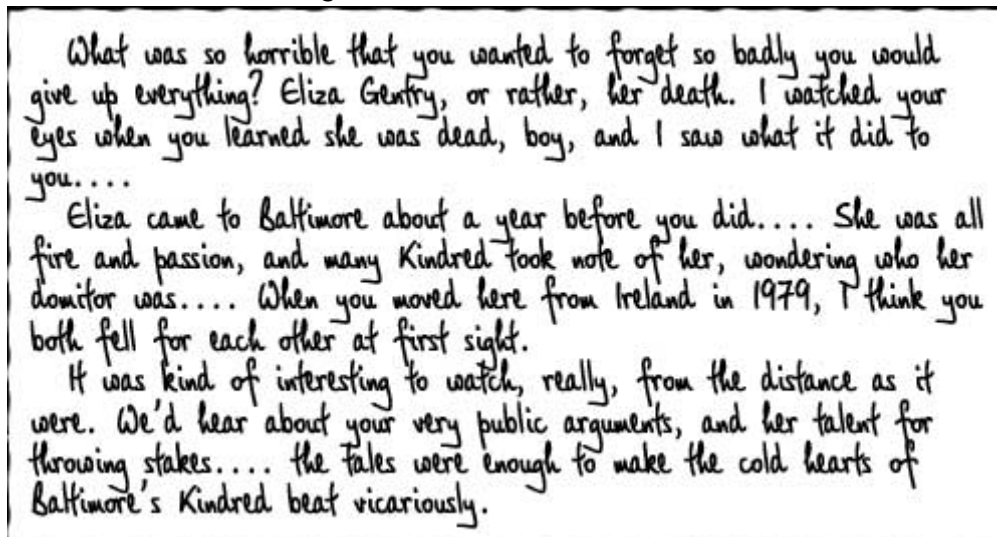 What was so horrible that you wanted to forget so badly you would
give up everything? Eliza Gentry, or rather, her death. I watched your
eyes when you learned she was dead, boy, and I saw what it did to
you....
Eliza came to Baltimore about a year before you did.... She was all
fire and passion, and many Kindred took note of her, wondering who her
domitor was.... When you moved here from Ireland in 1979, I think you
both fell for each other at first sight.
It was kind of interesting to watch, really, from the distance as it
were. We'd hear about your very public arguments, and her talent for
throwing stakes.... the tales were enough to make the cold hearts of
Baltimore's Kindred beat vicariously.